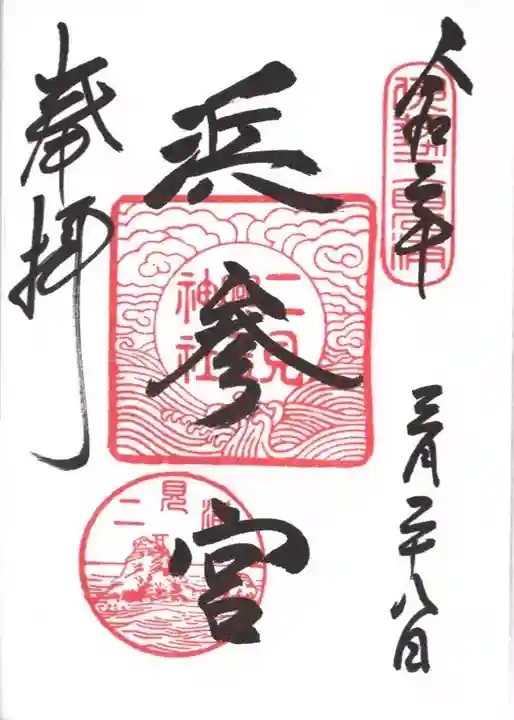 令和二年
三月二十八日
浜參宮
奉拝
二見
神社
二見浦